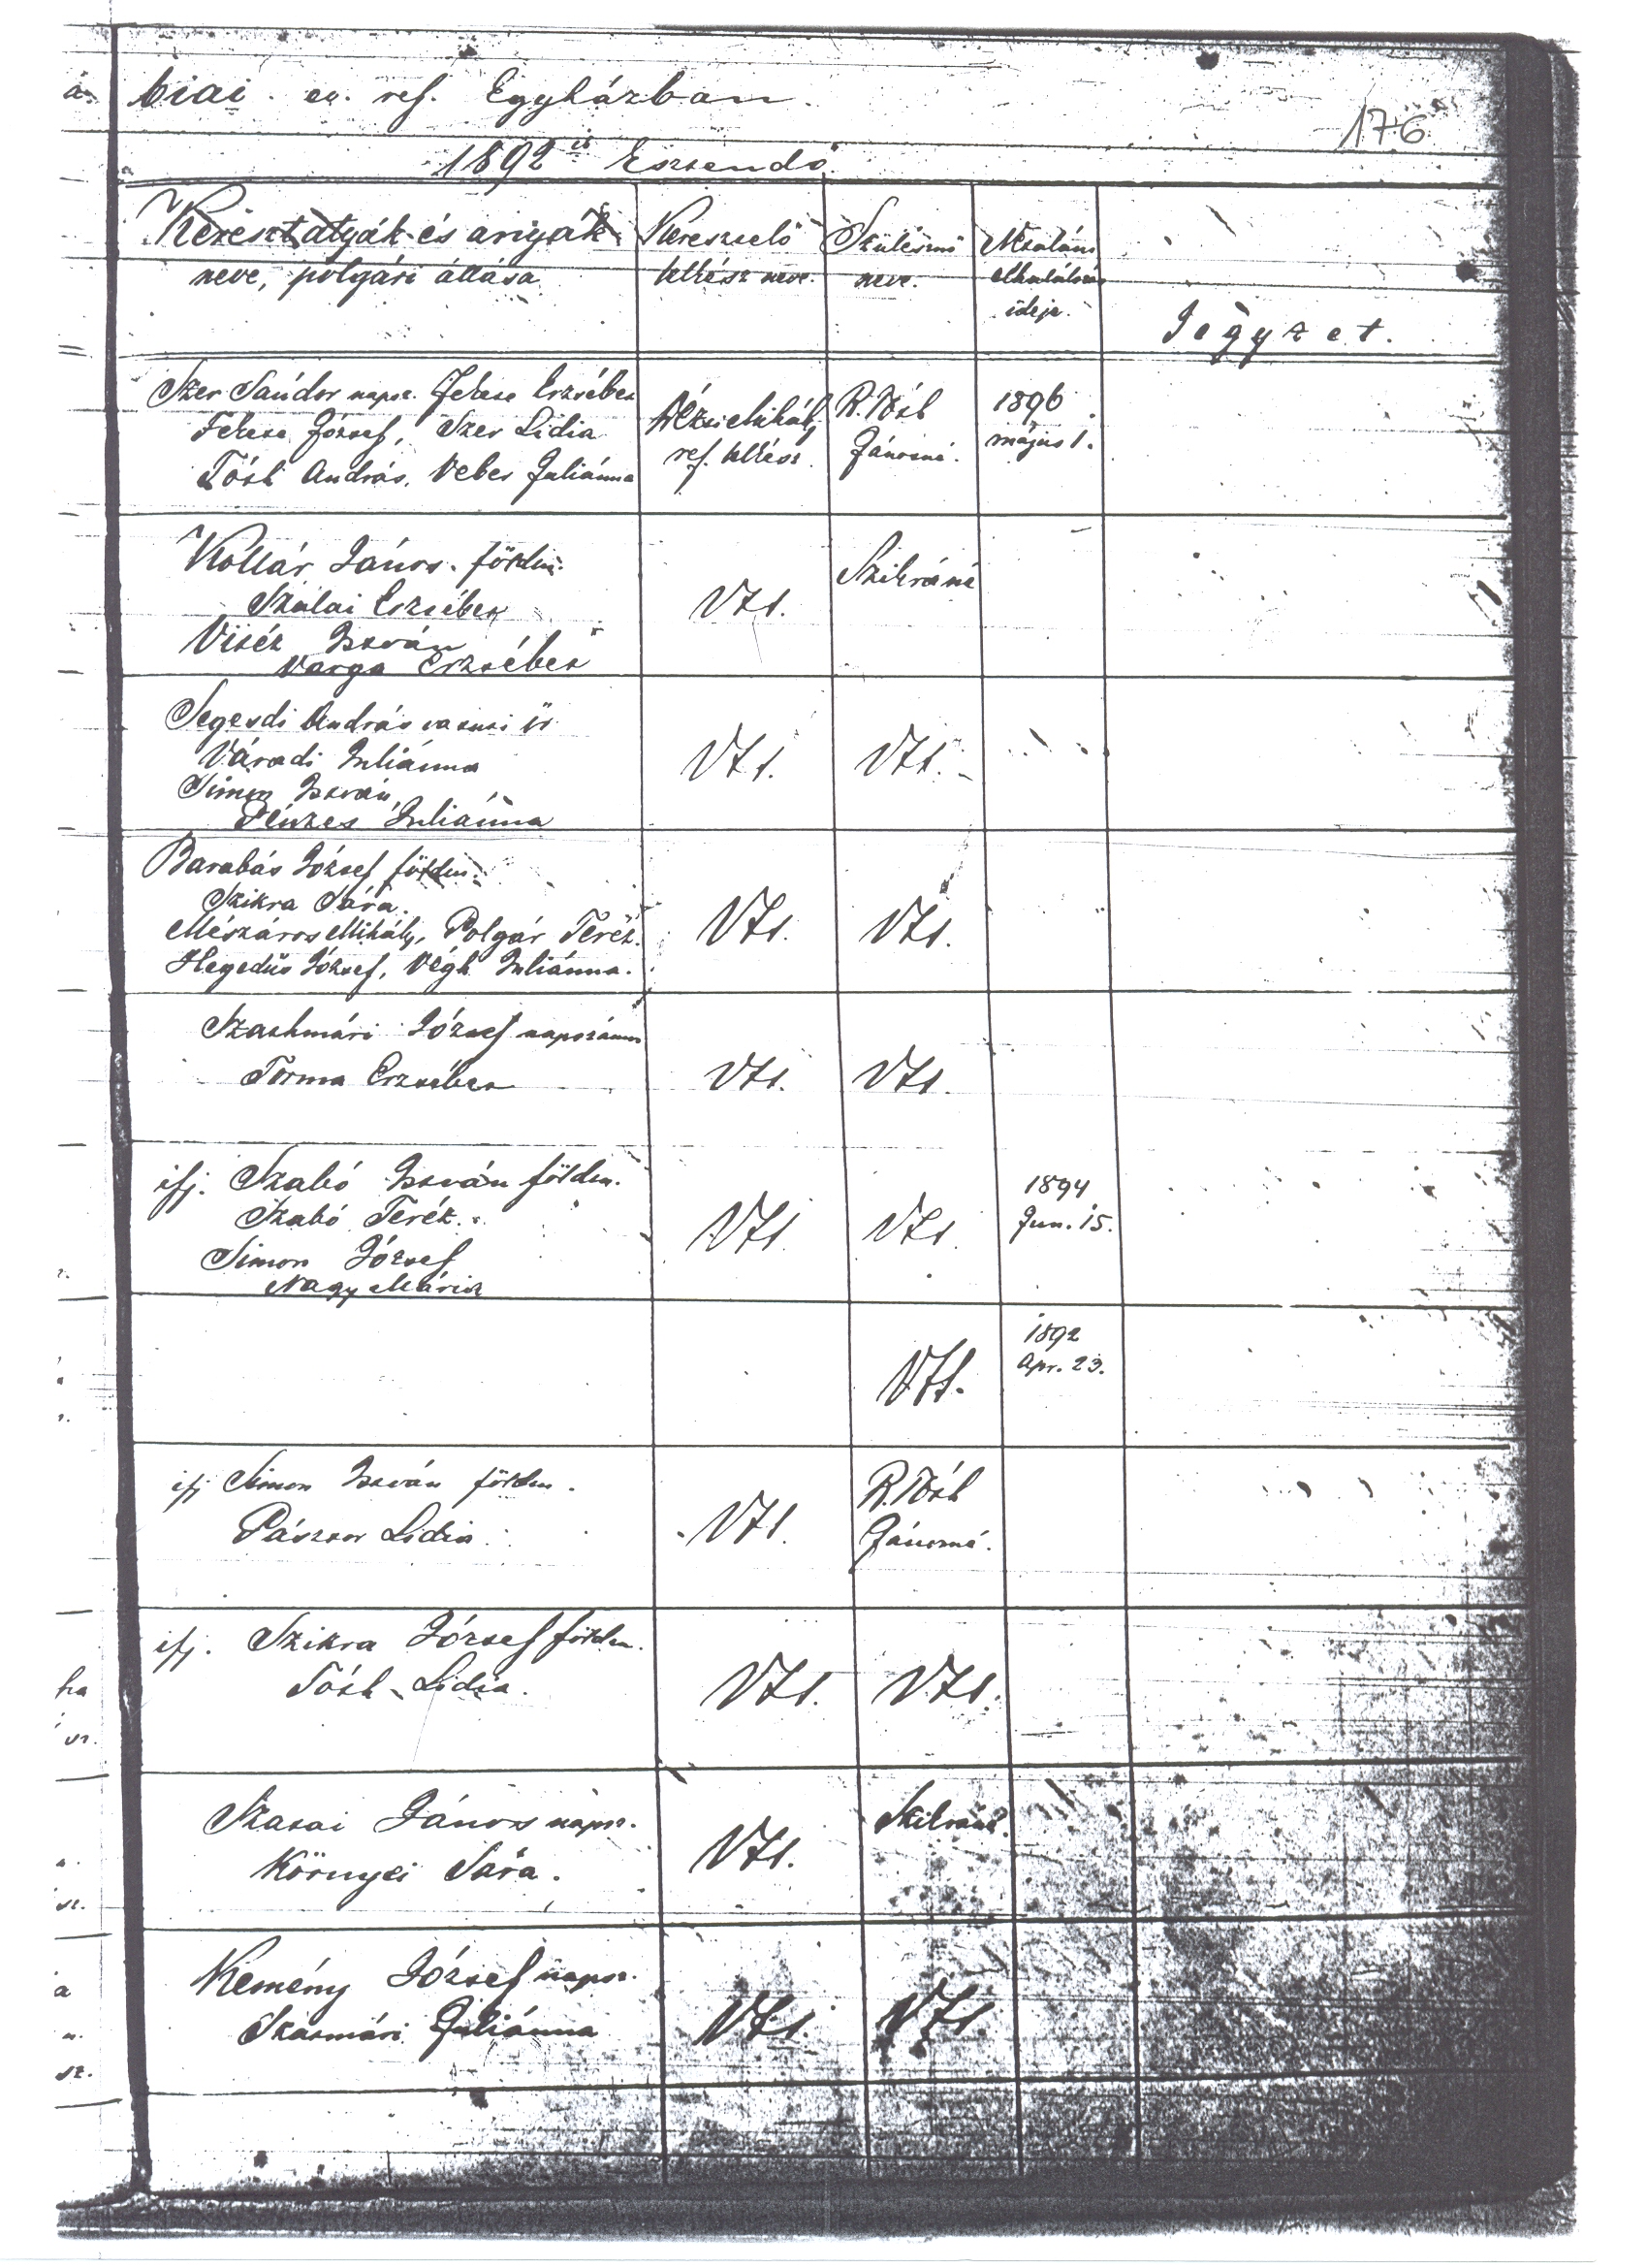 biai ev. ref. Egyházban.
176
1892 ik Esztendő
Keresztatyák és anyák
neve, polgári állása
Keresztelő
lelkész neve.
Szülésznő
neve.
elhalálozás
ideje.
Jegyzet.
Szer Sándor naps. Fekete Erzsébet
Fekete József, Szer Lidia
Tóth András, Veber Juliánna
Mihály
ref. lelkész.
R. Tóth
Jánosné.
1896
május 1.
Kollár János földm.
Szülai Erzsébet
István
Varga Erzsébet
Vts.
Szikráné
Segesdi András vasuti őr
Váradi Juliánna
Simon István
Pénzes Juliánna
Vts.
Vts.
Barabás József földm.
Szikra Sára.
Mészáros Mihály, Polgár Teréz.
Hegedüs József, Végh Juliánna.
Vts.
Vts.
Szathmári József napszámos
Torma Erzsébet
Vts.
Vts.
ifj. Szabó István földm.
Szabó Teréz.
Simon József
Nagy Mária
Vts
Vts
1894
Jun. 15.
Vts.
1892
Apr. 23.
ifj Simon István földm.
Pásztor Lidia.
Vts.
R. Tóth
Jánosné.
ifj. Szikra József földm.
Tóth Lidia.
Vts.
Vts.
János naps.
Környei Sára.
Vts.
Szikráné.
Kemény József naps.
Szatmári Juliánna
Vts.
Vts